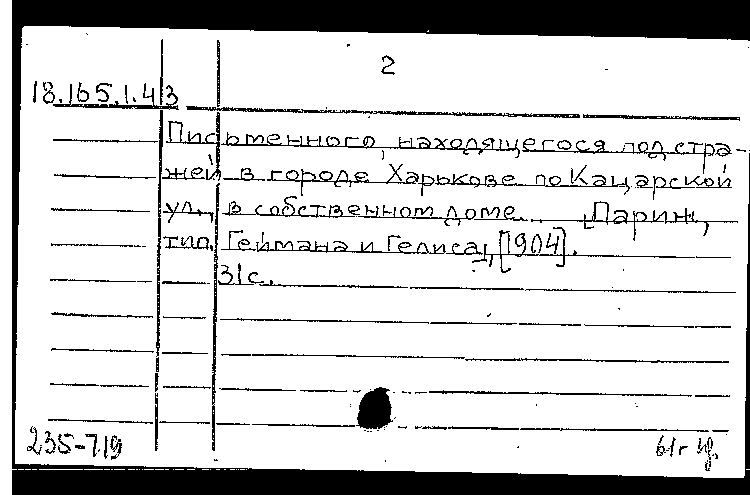 2
18.165.1.43
Письменного, находящегося под стра-
жей в городе Харькове по Кацарской
ул., в собственном доме... [Париж,
тип. Геймана и Гелиса], [1904].
31с.
235-719
61г